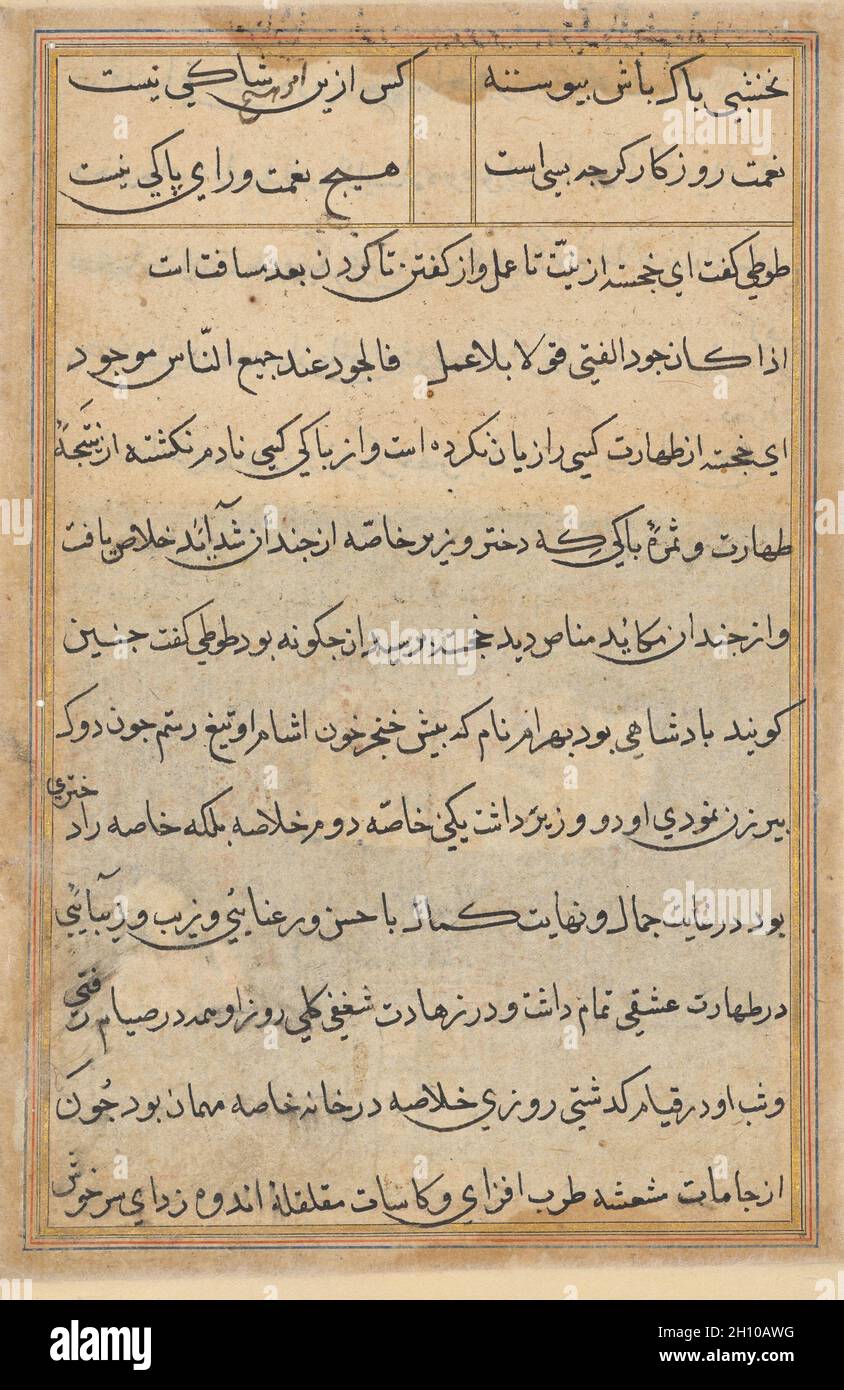 نخشبی باک باش بیوسته کس ازین امر شاکی نیست
نعمت روزکار کرجه بسی است هیج نعمت ورای پاکی نیست
طوطی کفت ای خجسته از نیّت تا عمل و از کفتن تا کردن بعد مسافت است
اذا کان جود الفتی قولا بلا عمل فالجود عند جمیع النّاس موجود
ای خجسته از طهارت کسی را زیان نکرده است و از باکی کسی نادم نکشته از نتیجهٔ
طهارت و ثمرهٔ باکی که دختر وزیر خاصّه از جندان شدآئد خلاص یافت
و از جندان مکائد مناص دید خجسته برسید از جکونه بود طوطی کفت جنین
کویند بادشاهی بود بهرام نام که بیش خنجر خون اشام او تیغ رستم جون دوک
بیرزن نمودی او دو وزیر داشت یکی خاصّه دوم خلاصه ملکه خاصه را دختری
بود در غایت جمال و نهایت کمال با حسن و رعنایئی و زیب و زیبآئیی
در طهارت عشقی تمام داشت و در زهادت شغفی کلی روز او همه در صیام رفتی
و شب او در قیام کذشتی روزی خلاصه در خانه خاصه مهمان بود جون
از جامات مشعشه طرب افزای و کاسات مقلقلهٔ اندوه زدای سرخوش
alamy
Image ID: 2H10AWG
www.alamy.com